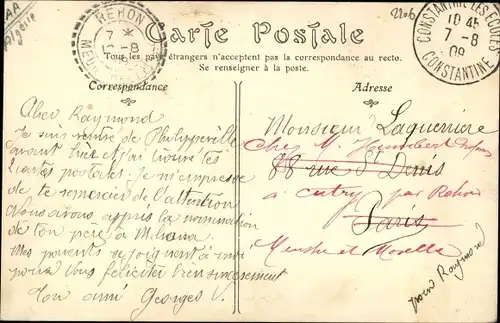 AA
Algérie
2206
REHON
7 *
10-8
CONSTANTINE LES ECURES
10 45
7-8
09
CONSTANTINE
Carte Postale
Tous les pays étrangers n'acceptent pas la correspondance au recto.
Se renseigner à la poste.
Correspondance
Adresse
Cher Raymond
Je suis rentré de Philippeville
avant hier et j'ai trouvé les
cartes postales; je m'empresse
de te remercier de l'attention
Nous avons appris la nomination
de ton père à Miliana
Mes parents se joignent à moi
pour vous féliciter bien sincèrement
Ton ami Georges V.
Monsieur Laguerriere
Chez M. Houmbert
88 rue St Denis
à Cutry par Rehon
Paris
Meurthe et Moselle
pour Raymond